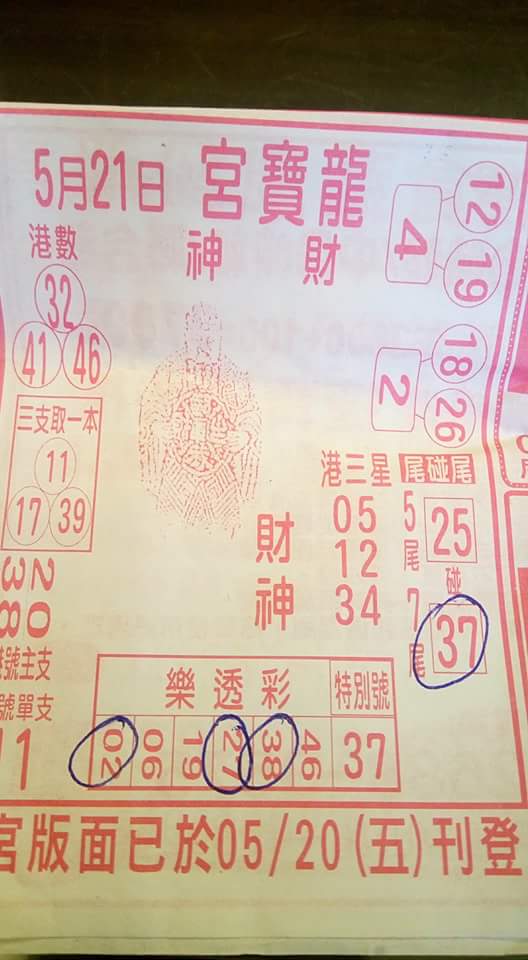 5月21日 宮寶龍
神 財
港數
32
41 46
三支取一本
11
17 39
20
38
號主支
號單支
12 19
4
18 26
2
港三星
05
12
34
尾碰尾
5尾 25
碰
7尾 37
財神
樂透彩 特別號
02 06 19 27 38 46 37
宮版面已於05/20(五)刊登